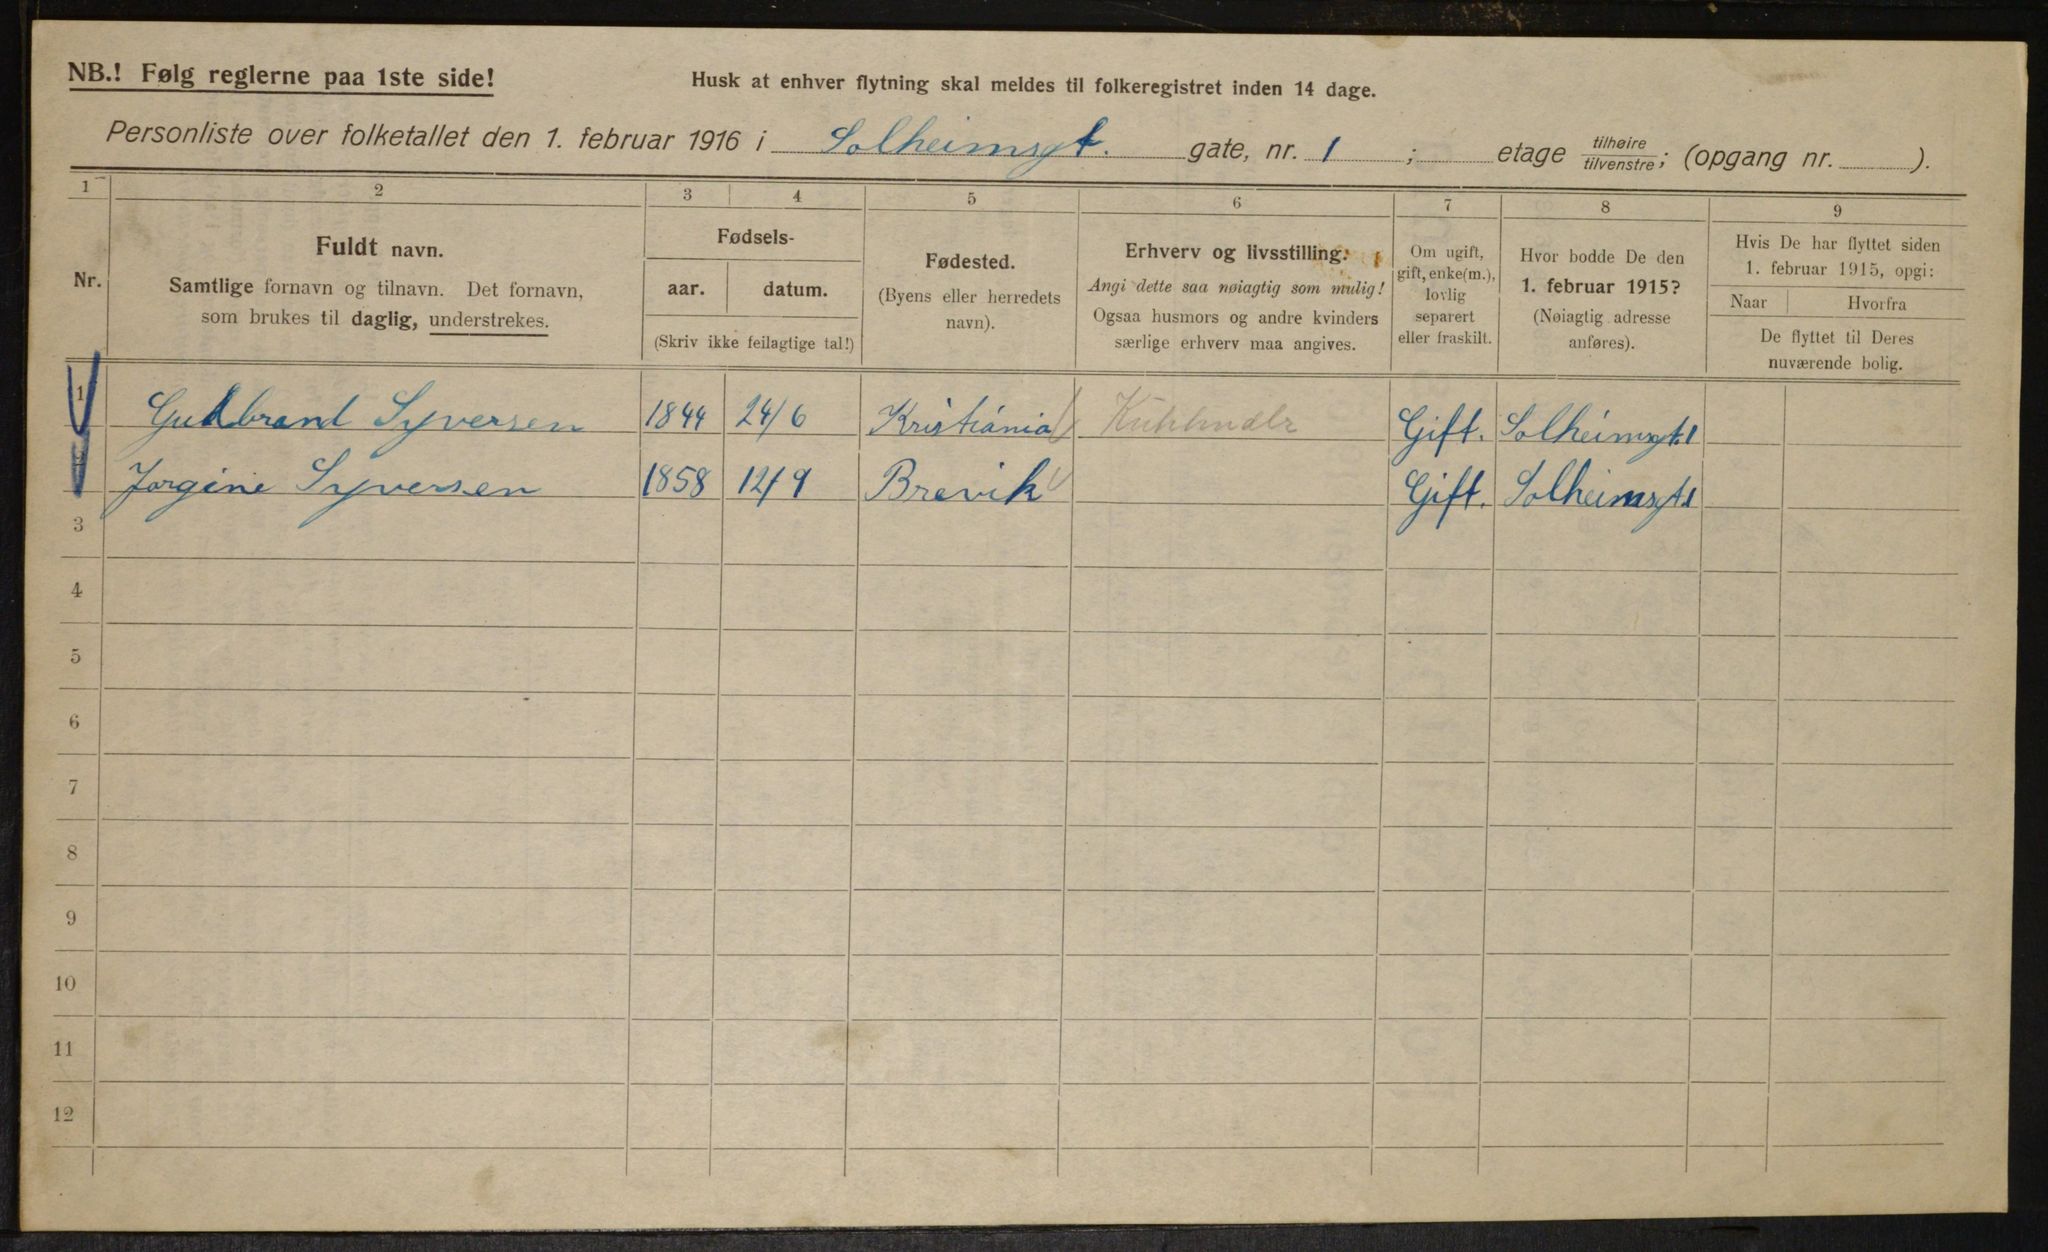 NB.! Følg reglerne paa 1ste side!
Husk at enhver flytning skal meldes til folkeregistret inden 14 dage.
Personliste over folketallet den 1. februar 1916 i Solheimsgt. gate, nr. 1 ; etage tilhøire/tilvenstre; (opgang nr. ).
1 2 3 4 5 6 7 8 9
Nr.
Fuldt navn.
Samtlige fornavn og tilnavn. Det fornavn,
som brukes til daglig, understrekes.
Fødsels-
aar. datum.
(Skriv ikke feilagtige tal!)
Fødested.
(Byens eller herredets
navn).
Erhverv og livsstilling.
Angi dette saa nøiagtig som mulig!
Ogsaa husmors og andre kvinders
særlige erhverv maa angives.
Om ugift,
gift, enke(m.),
lovlig
separert
eller fraskilt.
Hvor bodde De den
1. februar 1915?
(Nøiagtig adresse
anføres).
Hvis De har flyttet siden
1. februar 1915, opgi:
Naar Hvorfra
De flyttet til Deres
nuværende bolig.
1 Gudbrand Syversen 1844 24/6 Kristiania Gift. Solheimsgt. 1
2 Jorgine Syversen 1858 12/9 Brevik Gift. Solheimsgt 1
3
4
5
6
7
8
9
10
11
12